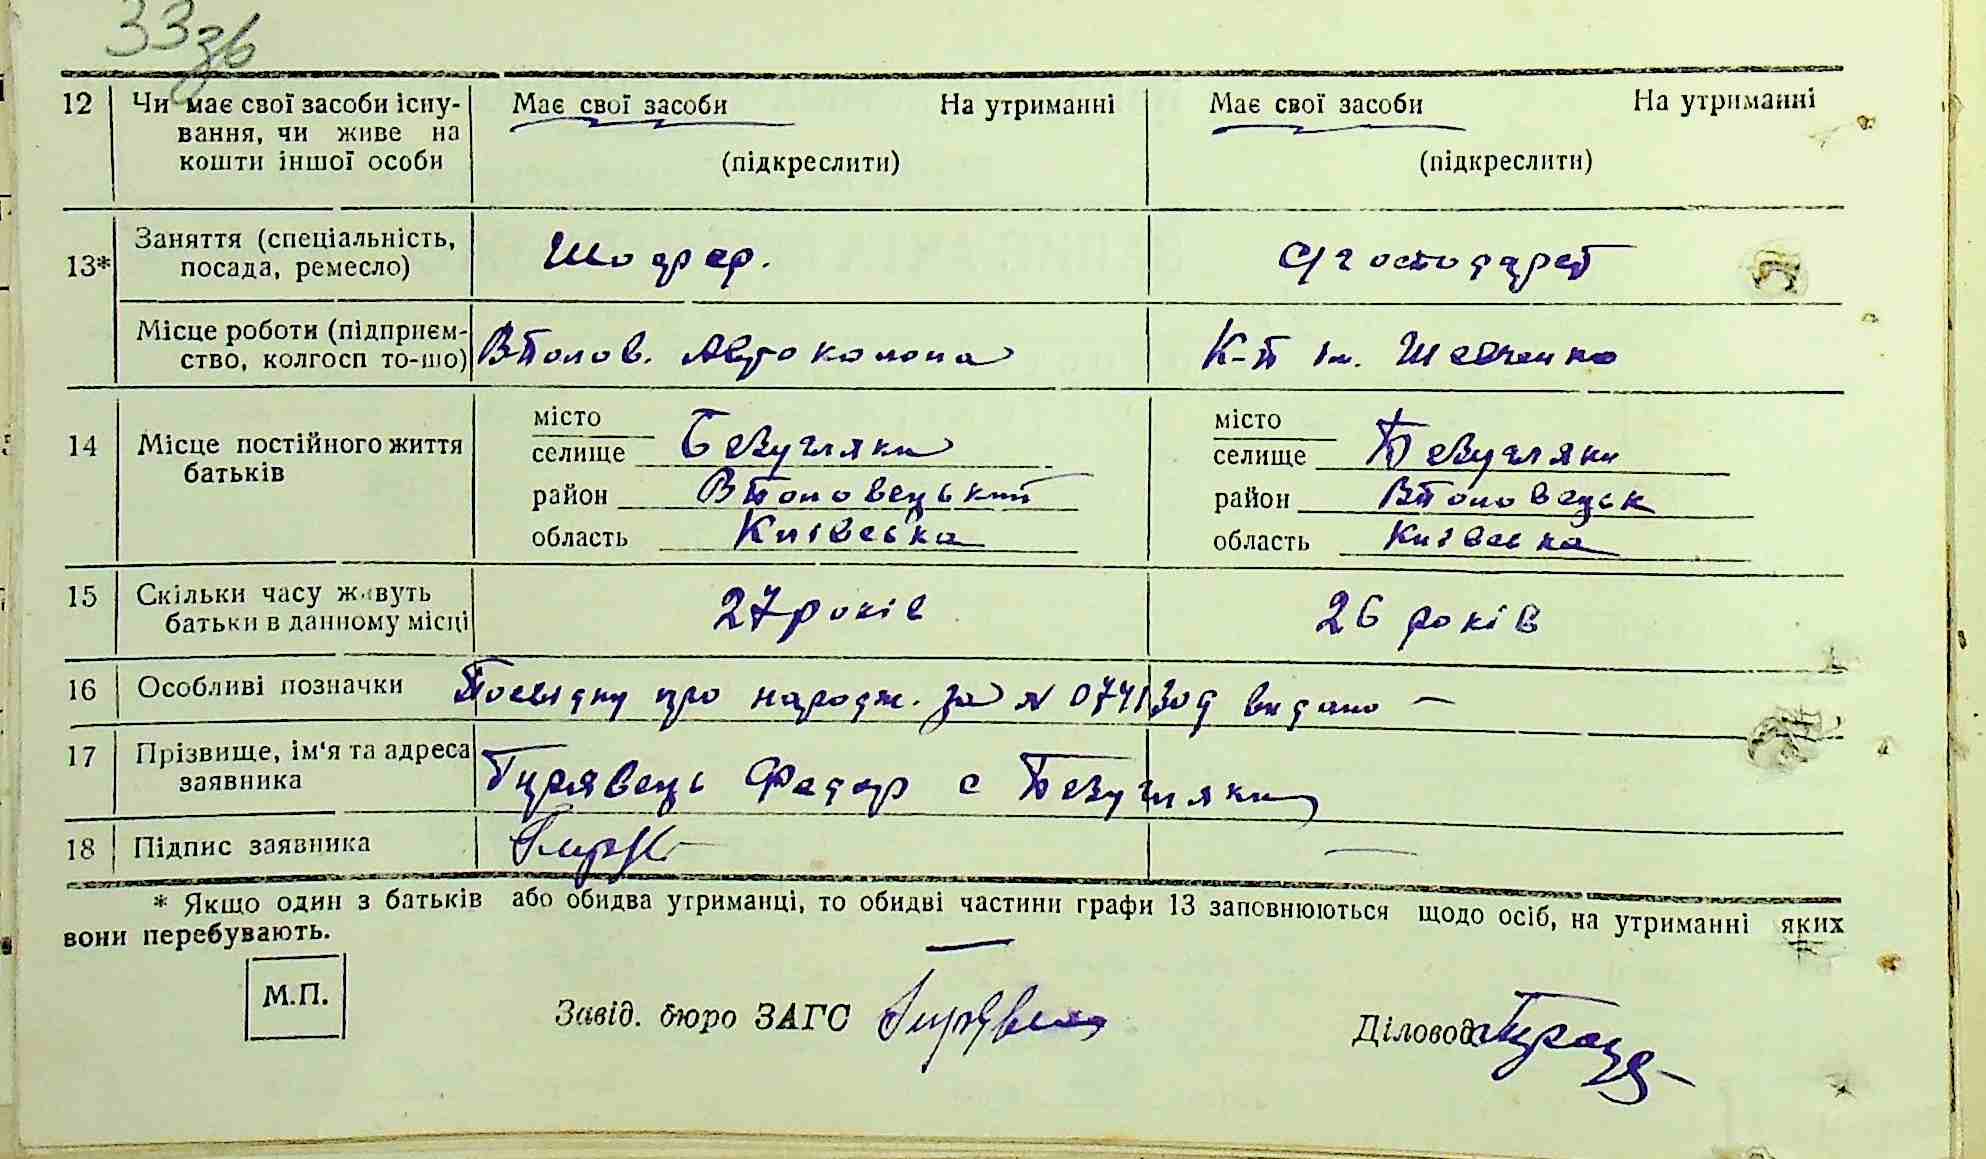 33зв
12 Чи має свої засоби існу- Має свої засоби На утриманні Має свої засоби На утриманні
вання, чи живе на
кошти іншої особи (підкреслити) (підкреслити)
13* Заняття (спеціальність, Шофер. с/господарст
посада, ремесло)
Місце роботи (підприєм- ВПолов. Автоколона К-п ім. Шевченко
ство, колгосп то-шо)
14 Місце постійного життя місто місто
батьків селище Безугляки селище Безугляки
район ВПоловецький район ВПоловецьк
область Київська область Київська
15 Скільки часу живуть 27 років 26 років
батьки в данному місці
16 Особливі позначки Посвідку про народж. за № видано —
17 Прізвище, ім'я та адреса Гирявець Федор с Безугляки
заявника
18 Підпис заявника —
* Якщо один з батьків або обидва утриманці, то обидві частини графи 13 заповнюються щодо осіб, на утриманні яких
вони перебувають.
М.П.
Завід. бюро ЗАГС Діловод